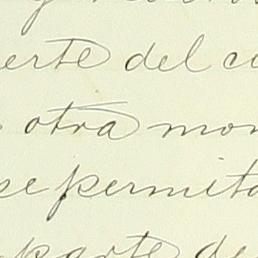 erte del c
otra mon
se permita
parte de